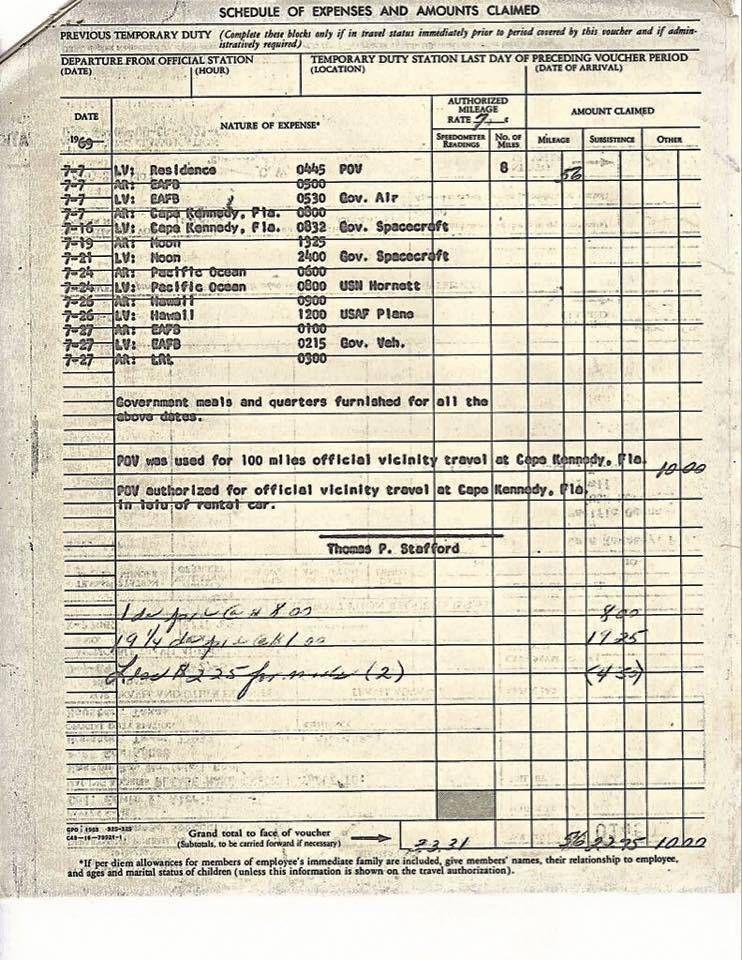 SCHEDULE OF EXPENSES AND AMOUNTS CLAIMED
PREVIOUS TEMPORARY DUTY (Complete these blocks only if in travel status immediately prior to period covered by this voucher and if admin-
istratively required)
DEPARTURE FROM OFFICIAL STATION TEMPORARY DUTY STATION LAST DAY OF PRECEDING VOUCHER PERIOD
(DATE) (HOUR) (LOCATION) (DATE OF ARRIVAL)
DATE NATURE OF EXPENSE* AUTHORIZED MILEAGE RATE 7 ¢ AMOUNT CLAIMED
1969 SPEEDOMETER READINGS NO. OF MILES MILEAGE SUBSISTENCE OTHER
7-7 LV: Residence 0445 POV 8 56
7-7 AR: EAFB 0500
7-7 LV: EAFB 0530 Gov. Air
7-7 AR: Cape Kennedy, Fla. 0800
7-16 LV: Cape Kennedy, Fla. 0832 Gov. Spacecraft
7-19 AR: Moon 1325
7-21 LV: Moon 2400 Gov. Spacecraft
7-24 AR: Pacific Ocean 0600
7-24 LV: Pacific Ocean 0800 USN Hornett
7-26 AR: Hawaii 0900
7-26 LV: Hawaii 1200 USAF Plane
7-27 AR: EAFB 0100
7-27 LV: EAFB 0215 Gov. Veh.
7-27 AR: LRL 0300
Government meals and quarters furnished for all the
above dates.
POV was used for 100 miles official vicinity travel at Cape Kennedy, Fla. 10.00
POV authorized for official vicinity travel at Cape Kennedy, Fla.
in leiu of rental car.
Thomas P. Stafford
1 day @ $8.00 8.00
19 1/4 days @ 1.00 19.25
Less $2.25 for meals (2) (4.50)
Grand total to face of voucher 33.31 56 22.75 10.00
(Subtotals, to be carried forward if necessary)
*If per diem allowances for members of employee's immediate family are included, give members' names, their relationship to employee,
and ages and marital status of children (unless this information is shown on the travel authorization).